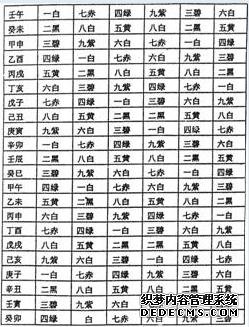 壬午 一白 七赤 四绿 九紫 三碧 六白
癸未 二黑 八白 五黄 八白 二黑 五黄
甲申 三碧 九紫 六白 七赤 一白 四绿
乙酉 四绿 一白 七赤 六白 九紫 三碧
丙戌 五黄 二黑 八白 五黄 八白 二黑
丁亥 六白 三碧 九紫 四绿 七赤 一白
戊子 七赤 四绿 一白 三碧 六白 九紫
己丑 八白 五黄 二黑 二黑 五黄 八白
庚寅 九紫 六白 三碧 一白 四绿 七赤
辛卯 一白 七赤 四绿 九紫 三碧 六白
壬辰 二黑 八白 五黄 八白 二黑 五黄
癸巳 三碧 九紫 六白 七赤 一白 四绿
甲午 四绿 一白 七赤 六白 九紫 三碧
乙未 五黄 二黑 八白 五黄 八白 二黑
丙申 六白 三碧 九紫 四绿 七赤 一白
丁酉 七赤 四绿 一白 三碧 六白 九紫
戊戌 八白 五黄 二黑 二黑 五黄 八白
己亥 九紫 六白 三碧 一白 四绿 七赤
庚子 一白 七赤 四绿 九紫 三碧 六白
辛丑 二黑 八白 五黄
壬寅 三碧 九紫 六白
癸卯 四绿 白 七赤 六白 九紫 三碧
织梦内容管理系统
DEDECMS.COM